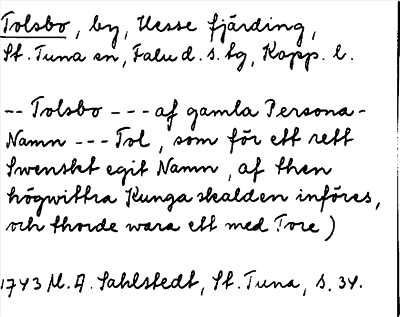 Tolsbo, by, Uesse fjärding,
St. Tuna sn, Falu d. s. lg, Kopp. l.
-- Tolsbo --- af gamla Persona-
Namn --- Tol, som för ett rett
Swenskt egit Namn, af then
högwittra Kunga skalden införes,
och thorde wara ett med Tore)
1743 M. A. Sahlstedt, St. Tuna, s. 34.